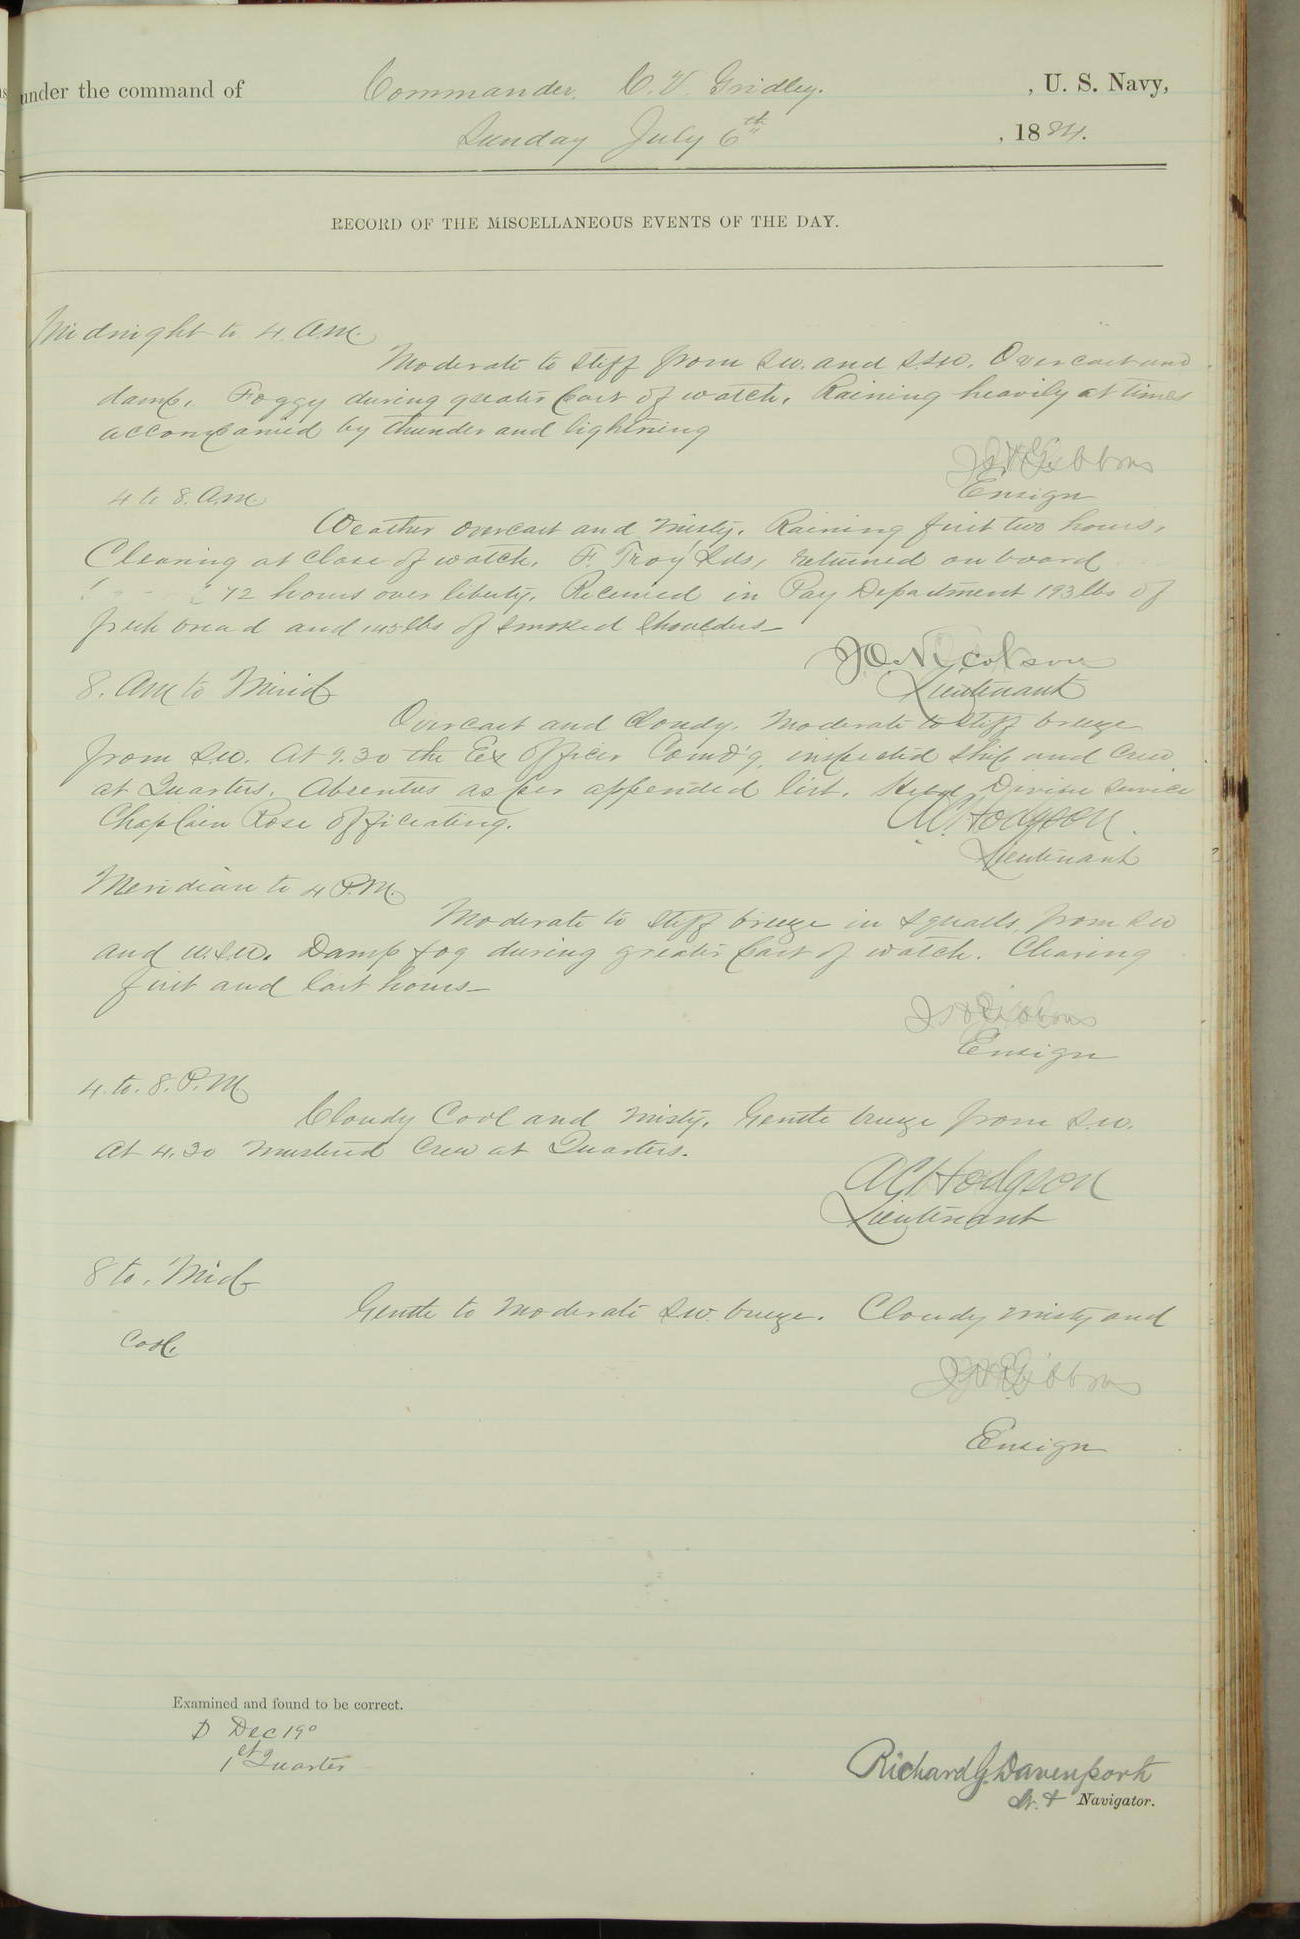 under the command of Commander C. V. Gridley. , U. S. Navy,
Sunday July 6th , 1884.
RECORD OF THE MISCELLANEOUS EVENTS OF THE DAY.
Midnight to 4. A.M.
Moderate to stiff from SW. and S.SW. Overcast and
damp. Foggy during greater part of watch. Raining heavily at times
accompanied by thunder and lightning
J H Gibbons
Ensign
4 to 8. A.M.
Weather overcast and misty. Raining first two hours.
Clearing at close of watch. F. Troy Lds, returned on board
72 hours over liberty. Received in Pay Department 193 lbs of
fresh bread and 143 lbs of smoked shoulders
J.O. Nicolson
Lieutenant
8. AM to Merid
Overcast and cloudy. Moderate to stiff breeze
from S.W. At 9.30 the Ex Officer Comd'g. inspected ship and crew
at Quarters. Absentees as per appended list. Held Divine Service
Chaplain Rose officiating.
A C Hodgson.
Lieutenant
Meridian to 4 P.M.
Moderate to stiff breeze in squalls, from SW
and W.S.W. Damp fog during greater part of watch. Clearing
first and last hours
J H Gibbons
Ensign
4. to. 8. P.M
Cloudy Cool and misty. Gentle breeze from S.W.
At 4.30 mustered crew at Quarters.
A C Hodgson
Lieutenant
8 to. Mid
Gentle to moderate S.W. breeze. Cloudy misty and
Cool.
J H Gibbons
Ensign
Examined and found to be correct.
D Dec 19°
1st Quarter
Richard G. Davenport
Lt. & Navigator.